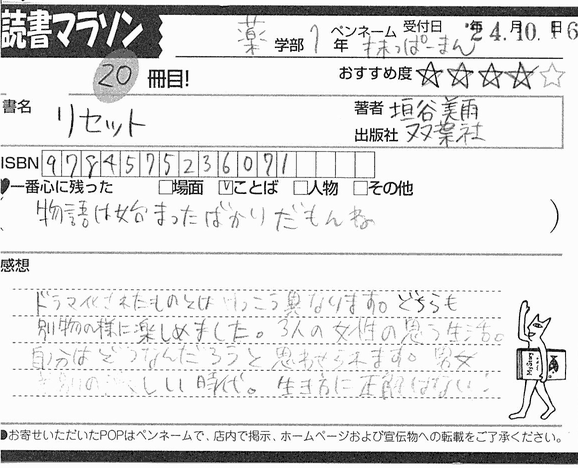 読書マラソン
薬 学部 1 年 ペンネーム 抹っぱーまん 受付日 年 月 日 24.10.16
20 冊目! おすすめ度 ★★★★☆
書名 リセット
著者 垣谷美雨
出版社 双葉社
ISBN 9784575236071
一番心に残った □場面 ☑ことば □人物 □その他
( 物語は始まったばかりだもんね )
感想
ドラマ化されたものとはけっこう異なります。どちらも
別物の様に楽しめました。3人の女性の思う生活。
自分はどうなんだろうと思わせられます。男女
しい時代。生き方に正解はない!
●お寄せいただいたPOPはペンネームで、店内で掲示、ホームページおよび宣伝物への転載をご了承ください。